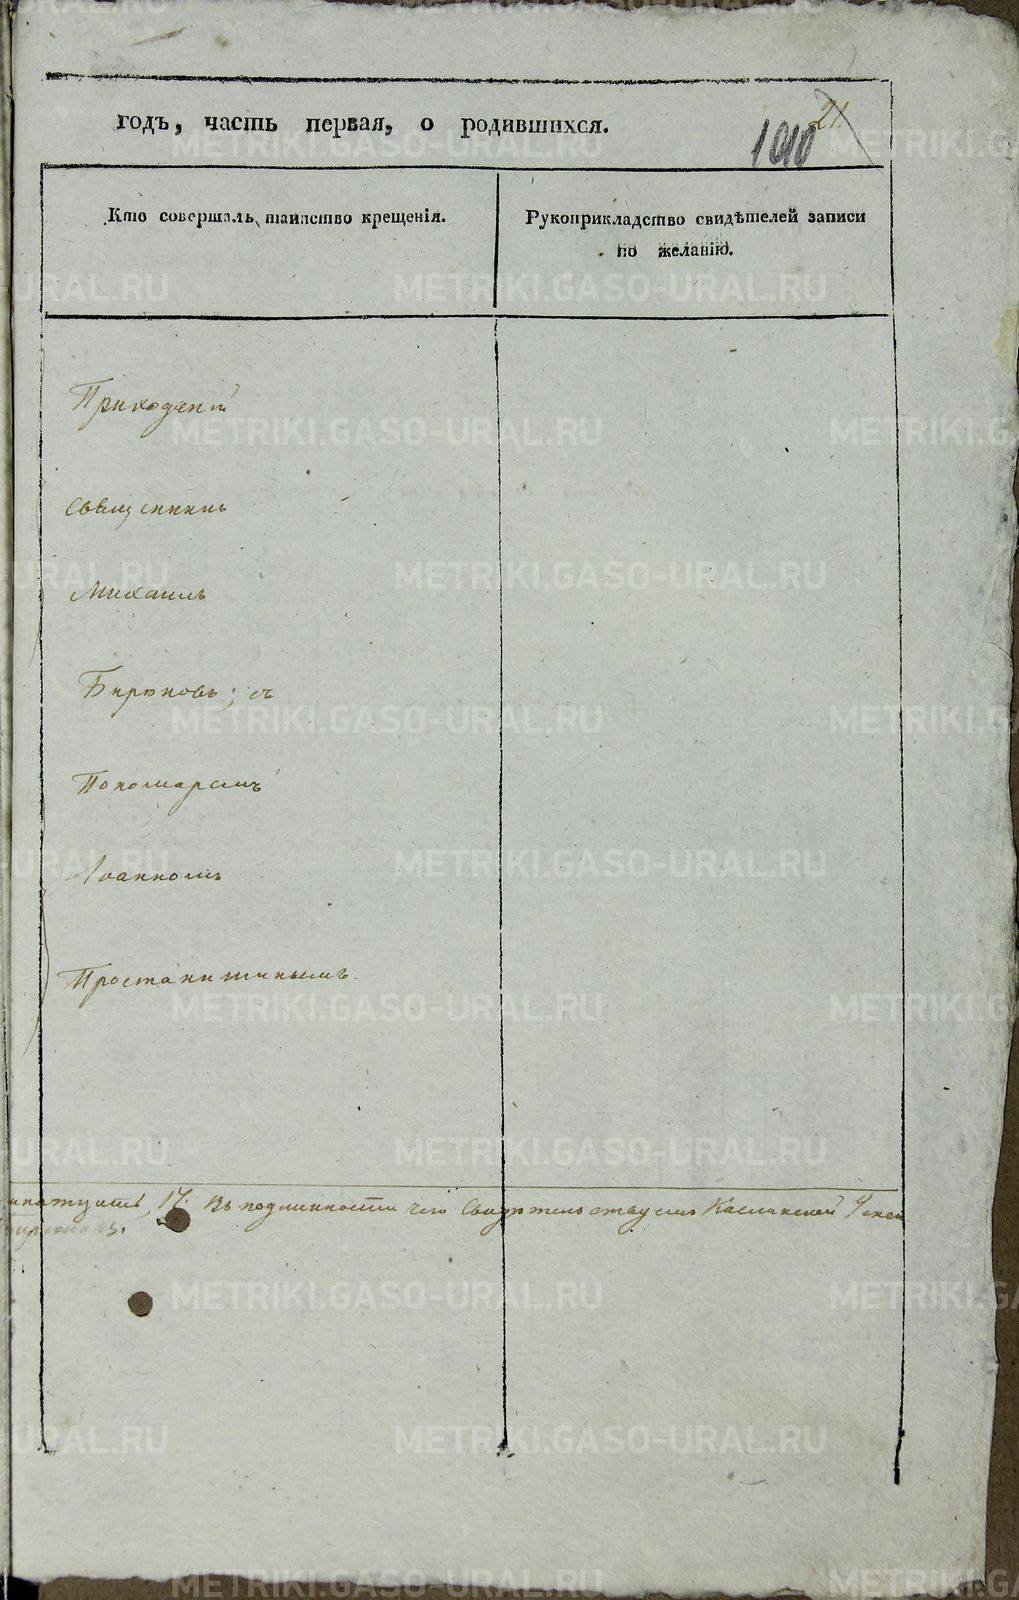 21
годъ, часть первая, о родившихся.
1010
Кто совершалъ таинство крещенія.
Рукоприкладство свидѣтелей записи
по желанію.
Приходскій
Священникъ
Михаилъ
Бирюковъ; съ
Пономаремъ
Іоанномъ
Простанитинымъ.
17. Въ подлинности чего Свидѣтельствуемъ Каслинской
METRIKI.GASO-URAL.RU